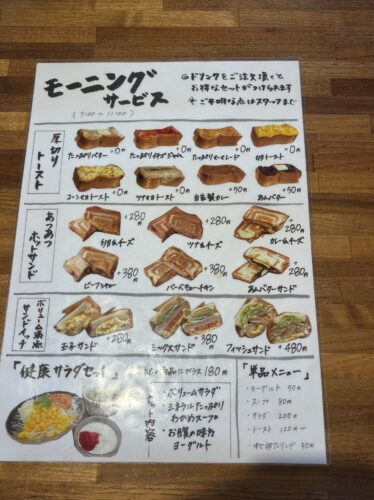 モーニング
サービス
(7:00〜11:00)
◎ドリンクをご注文頂くと
お得なセットがつけられます
※ご不明な点はスタッフまで
厚切り
トースト
たっぷりバター +0円
たっぷりイチゴジャム +0円
たっぷりマーマレード +0円
卵トースト +0円
コーンモロトースト +0円
ツナモロトースト +0円
自家製カレー +50円
あんバター +50円
あつあつ
ホットサンド
卵&チーズ +280円
ツナ&チーズ +280円
カレー&チーズ +280円
ビーフシチュー +380円
バーベキューチキン +380円
あんバターサンド +280円
ボリューム満点
サンドイッチ
玉子サンド +280円
ミックスサンド +380円
フィッシュサンド +480円
「健康サラダセット」
商品にプラス 180円
セット内容
・ボリュームサラダ
・ミネラルたっぷり
わかめスープ
・お腹の味方
ヨーグルト
「単品メニュー」
・ヨーグルト 50円
・スープ 80円
・サラダ 200円
・トースト 120円〜
・ゆで卵 50円